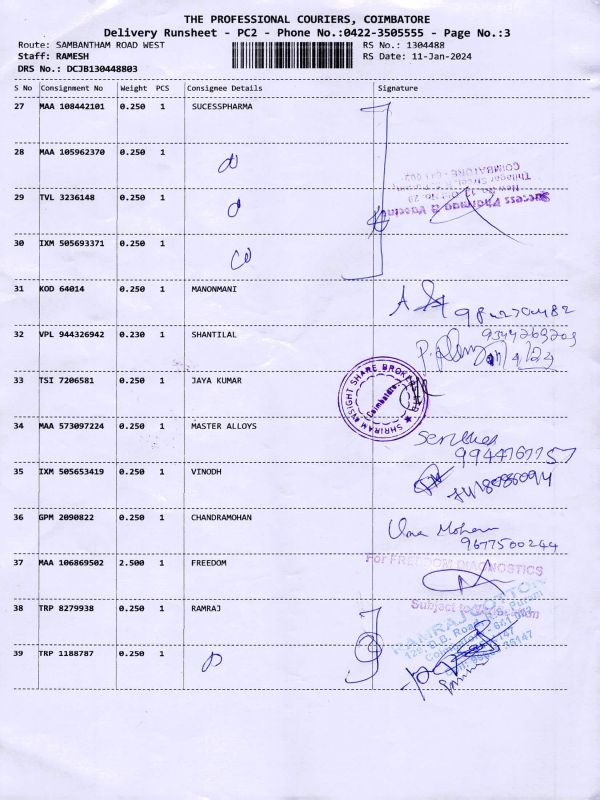 THE PROFESSIONAL COURIERS, COIMBATORE
Delivery Runsheet - PC2 - Phone No.:0422-3505555 - Page No.:3
Route: SAMBANTHAM ROAD WEST RS No.: 1304488
Staff: RAMESH RS Date: 11-Jan-2024
DRS No.: DCJB130448803
S No Consignment No Weight PCS Consignee Details Signature
27 MAA 108442101 0.250 1 SUCESSPHARMA
28 MAA 105962370 0.250 1
29 TVL 3236148 0.250 1
30 IXM 505693371 0.250 1
31 KOD 64014 0.250 1 MANONMANI
32 VPL 944326942 0.230 1 SHANTILAL
33 TSI 7206581 0.250 1 JAYA KUMAR
SHRIRAM INSIGHT SHARE BROKERS
Coimbatore
34 MAA 573097224 0.250 1 MASTER ALLOYS
35 IXM 505653419 0.250 1 VINODH
36 GPM 2090822 0.250 1 CHANDRAMOHAN
9677500244
37 MAA 106869502 2.500 1 FREEDOM
For FREEDOM DIAGNOSTICS
38 TRP 8279938 0.250 1 RAMRAJ
Subject to
RAMRAJ COTTON
39 TRP 1188787 0.250 1